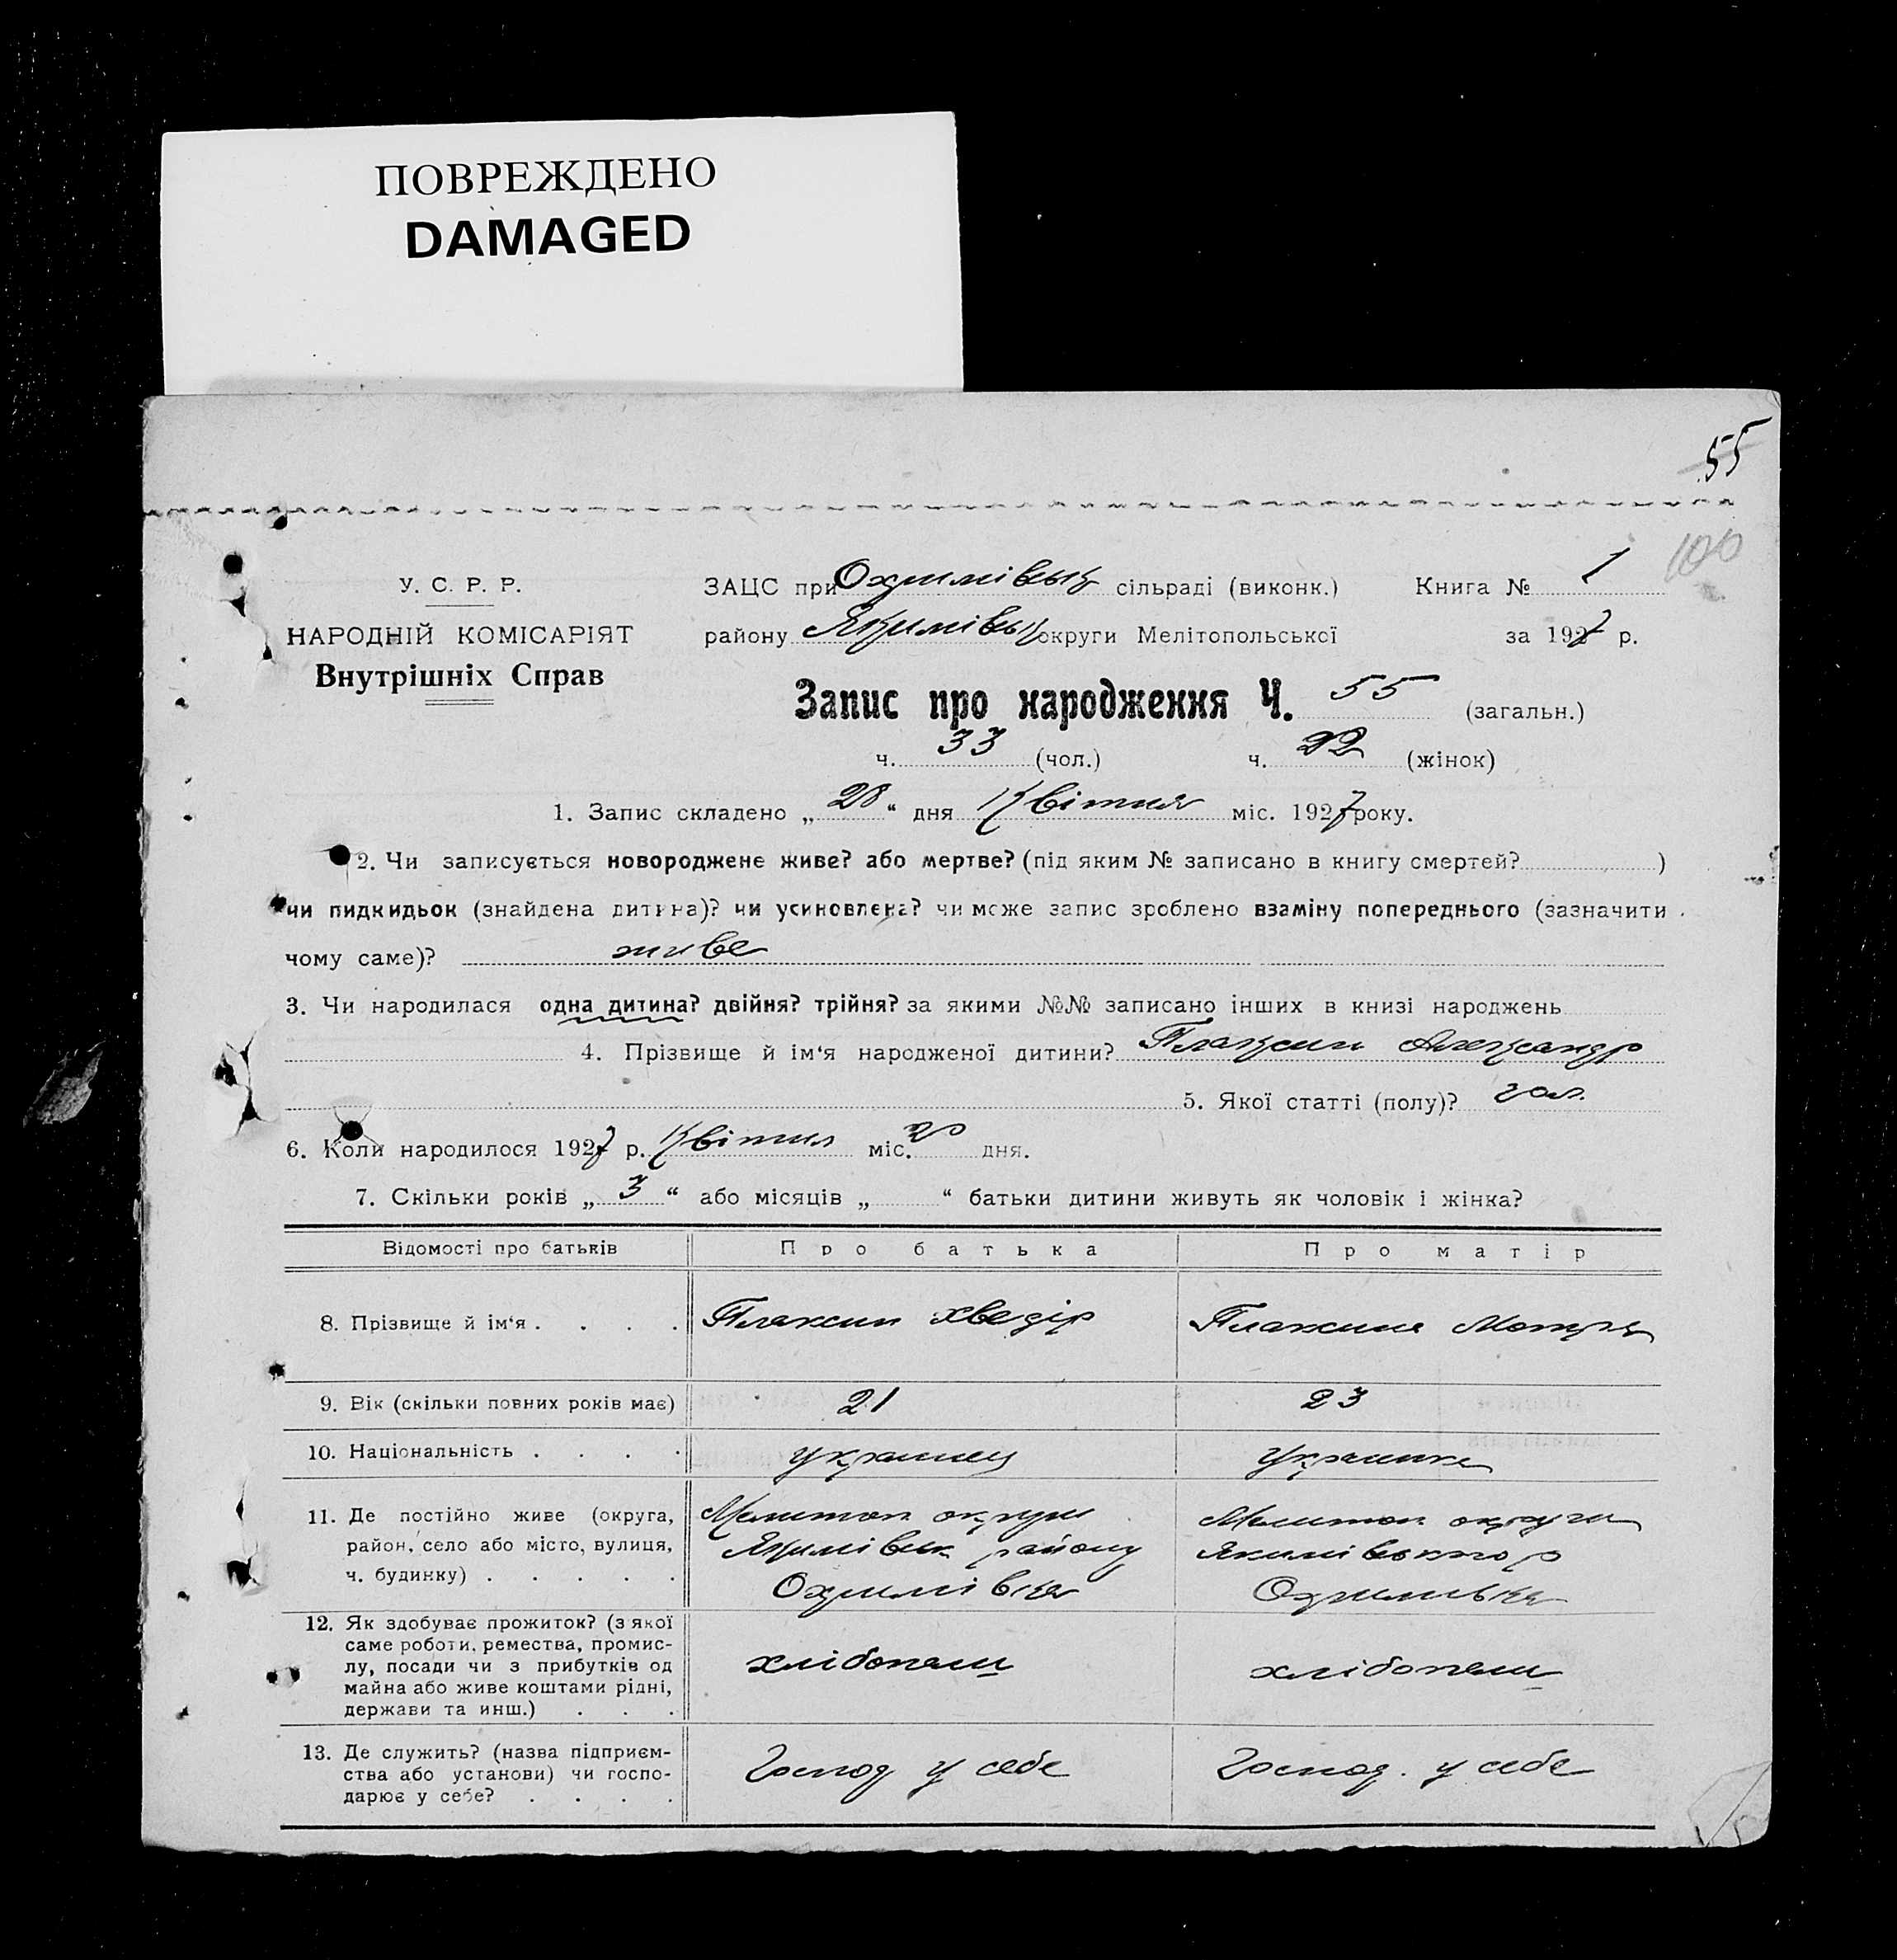 ПОВРЕЖДЕНО
DAMAGED
55
100
У. С. Р. Р.
НАРОДНІЙ КОМІСАРІЯТ
Внутрішніх Справ
ЗАЦС при Охримівськ сільраді (виконк.) Книга № 1
району Якимівськ округи Мелітопольської за 1927 р.
Запис про народження Ч. 55 (загальн.)
ч. 33 (чол.) ч. 22 (жінок)
1. Запис складено „ 28 “ дня Квітня міс. 1927 року.
2. Чи записується новороджене живе? або мертве? (під яким № записано в книгу смертей? )
чи пидкидьок (знайдена дитина)? чи усиновлена? чи може запис зроблено взаміну попереднього (зазначити
чому саме)? живе
3. Чи народилася одна дитина? двійня? трійня? за якими №№ записано інших в книзі народжень
4. Прізвище й ім‘я народженої дитини? Плаксин Александр
5. Якої статті (полу)? чол.
6. Коли народилося 1927 р. Квітня міс. 20 дня.
7. Скільки років „ 3 “ або місяців „ “ батьки дитини живуть як чоловік і жінка?
Відомості про батьків Про батька Про матір
8. Прізвище й ім‘я . . . . Плаксин Хведір Плаксина Мотря
9. Вік (скільки повних років має) 21 23
10. Національність . . . . украинец украинка
11. Де постійно живе (округа, Мелитоп округи Мелитоп округи
район, село або місто, вулиця, Якимівськ району Якимівського р
ч. будинку) . . . . . Охримівка Охримівка
12. Як здобуває прожиток? (з якої
саме роботи, ремества, промис-
лу, посади чи з прибутків од хлібопаш хлібопаш
майна або живе коштами рідні,
держави та инш.) . . .
13. Де служить? (назва підприєм-
ства або установи) чи госпо- Господ у себе Господ. у себе
дарює у себе? . . . .